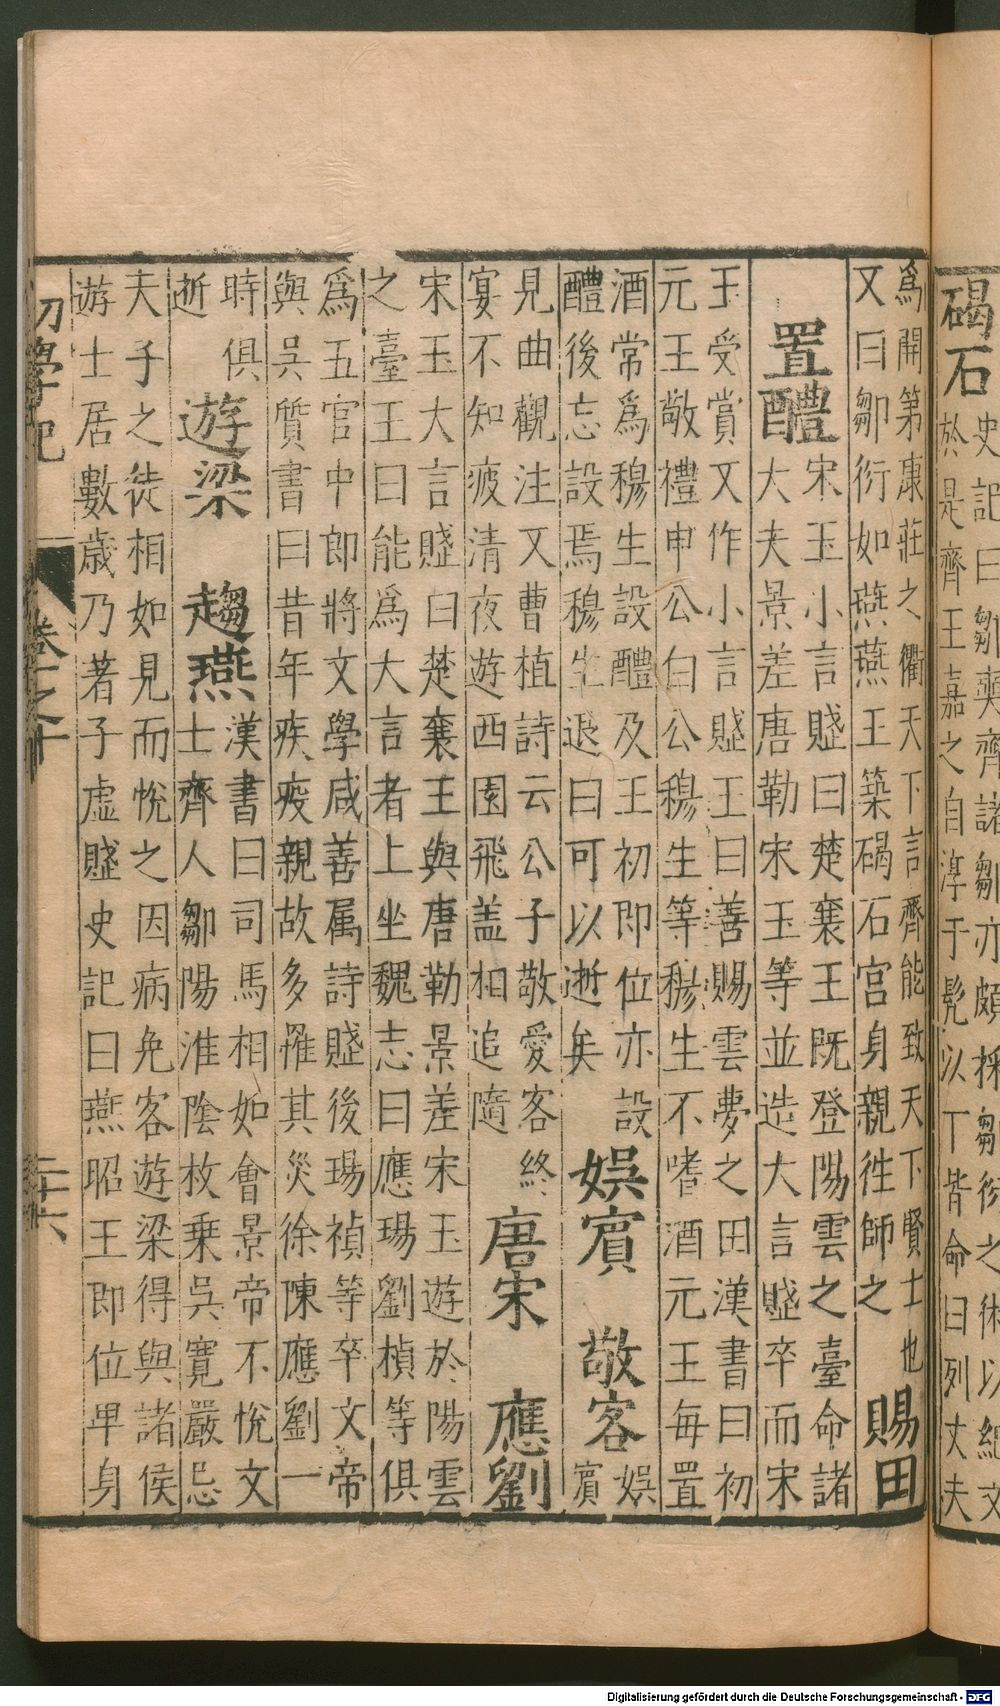 碣石
史記曰鄒奭齊諸鄒亦頗採鄒衍之術以紀文
於是齊王嘉之自淳于髡以下皆命曰列丈夫
為開第康莊之衢天下言齊能致天下賢士也
又曰鄒衍如燕燕王築碣石宮身親往師之
賜田
置醴
宋玉小言賦曰楚襄王既登陽雲之臺命諸
大夫景差唐勒宋玉等並造大言賦卒而宋
玉受賞又作小言賦王曰善賜雲夢之田漢書曰初
元王敬禮申公白公穆生等穆生不嗜酒元王每置
酒常為穆生設醴及王初即位亦設
醴後忘設焉穆生退曰可以逝矣
娛賓
敬客
娛
賓
見曲觀注又曹植詩云公子敬愛客終
宴不知疲清夜遊西園飛盖相追隨
唐宋
應劉
宋玉大言賦曰楚襄王與唐勒景差宋玉遊於陽雲
之臺王曰能為大言者上坐魏志曰應瑒劉楨等俱
為五官中郎將文學咸善属詩賦後瑒禎等卒文帝
與吳質書曰昔年疾疫親故多罹其災徐陳應劉一
時俱
逝
遊梁
趨燕
漢書曰司馬相如會景帝不悅文
士齊人鄒陽淮陰枚乗吳寛嚴忌
夫子之徒相如見而悅之因病免客遊梁得與諸侯
遊士居數歲乃著子虛賦史記曰燕昭王即位卑身
初學記
卷之十
二十六
Digitalisierung gefördert durch die Deutsche Forschungsgemeinschaft - DFG